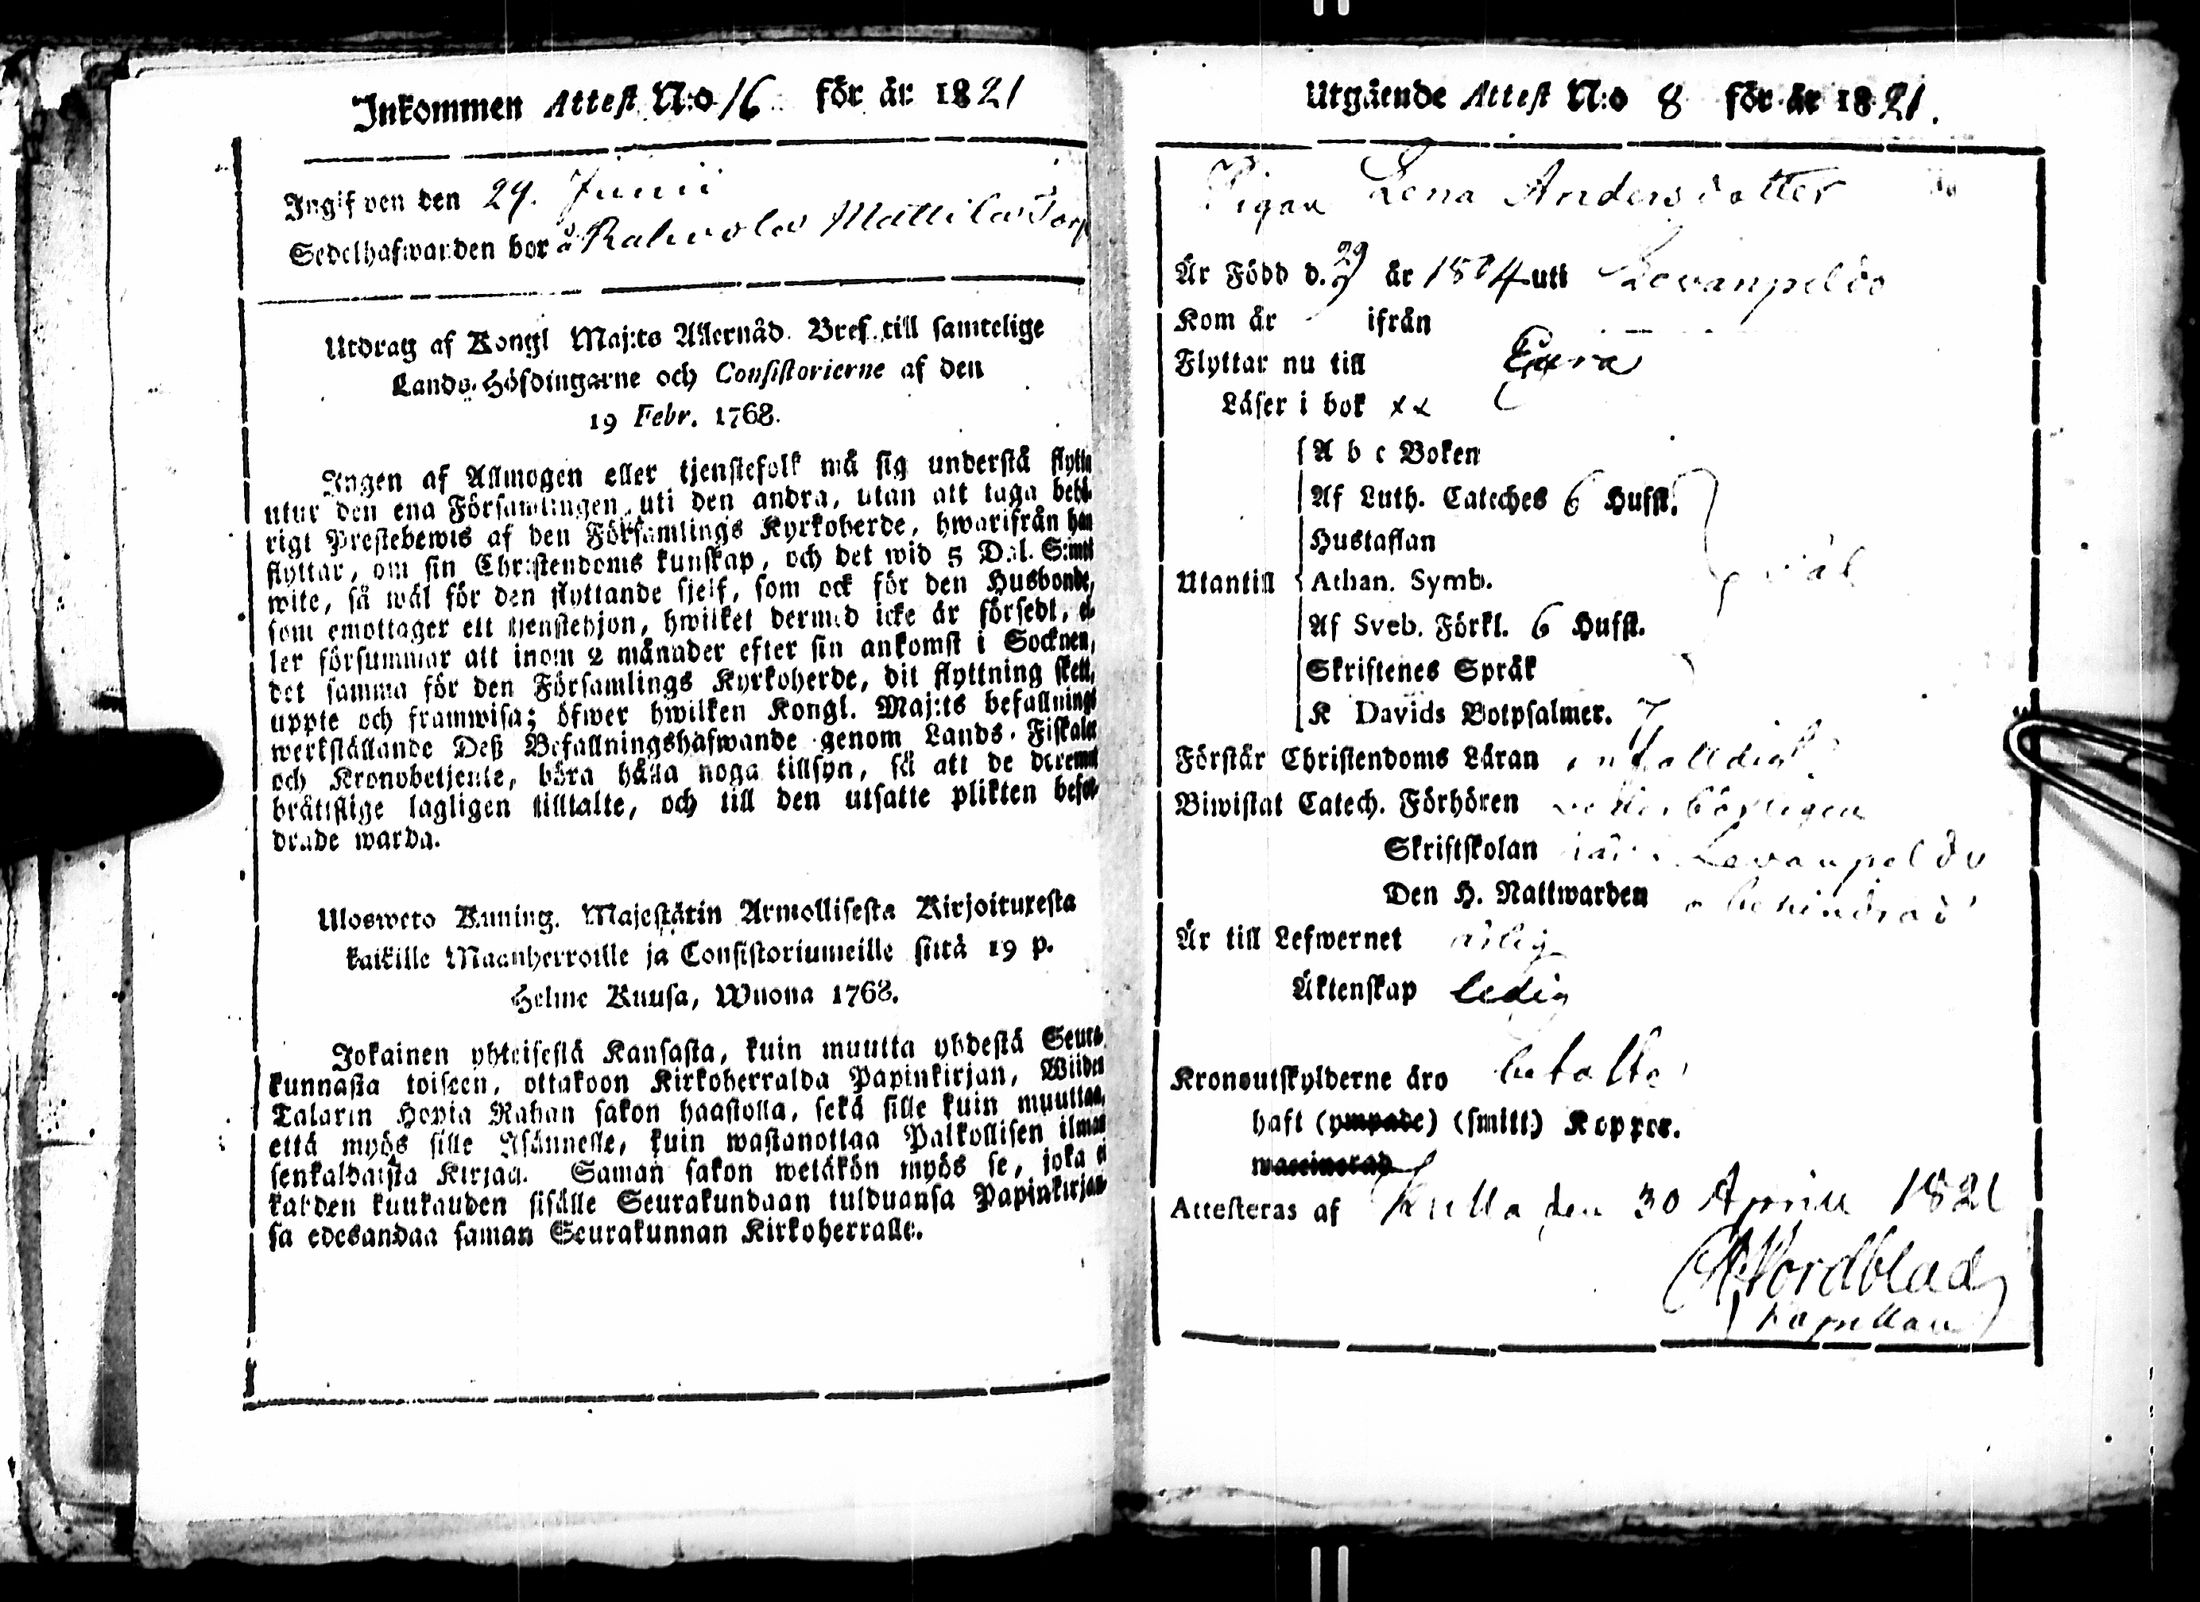 Inkommen Attest N:o 16 för år 1821
Ingifven den 29. Junii
Sedelhafwanden bor å Rahvola Mattila Torp
Utdrag af Kongl Maj:ts Allernåd. Bref till samtelige
Lands-Höfdingarne och Consistorierne af den
19 Febr. 1768.
Ingen af Allmogen eller tjenstefolk må sig understå flytta
utur den ena Församlingen uti den andra, utan att taga behö-
rigt Prestebewis af den Församlings Kyrkoherde, hwarifrån han
flyttar, om sin Christendoms kunskap, och det wid 5 Dal. S:mts
wite, så wäl för den flyttande sjelf, som ock för den Husbonde,
som emottager ett tjenstehjon, hwilket dermed icke är försedt, el-
ler försummar att inom 2 månader efter sin ankomst i Socknen,
det samma för den Församlings Kyrkoherde, dit flyttning skett,
uppte och framwisa; öfwer hwilken Kongl. Maj:ts befallnings
werkställande Deß Befallningshafwande genom Lands-Fiskaler
och Kronobetjente, böra hålla noga tillsyn, så att de deremot
bråttslige lagligen tilltalte, och till den utsatte plikten befor-
drade warda.
Ulosweto Kuning. Majestätin Armollisesta Kirjoituxesta
kaikille Maanherroille ja Consistoriumeille siitä 19 p.
Helme Kuusa, Wuona 1768.
Jokainen yhteisestä Kansasta, kuin muutta yhdestä Seura-
kunnasta toiseen, ottakoon Kirkoherralda Papinkirjan, Wiiden
Talarin Hopia Rahan sakon haastolla, sekä sille kuin muuttaa,
että myös sille Isännelle, kuin wastanottaa Palkollisen ilman
senkaldaista Kirjaa. Saman sakon wetäkön myös se, joka ei
kahden kuukauden sisälle Seurakundaan tulduansa Papinkirjan-
sa edesandaa saman Seurakunnan Kirkoherralle.
Utgående Attest N:o 8 för år 1821.
Pigan Lena Andersdotter
Är Född d. 29 år 1804 uti Levanpeldo
Kom år ifrån
Flyttar nu till Eura
Läser i bok xx
A b c Boken
Af Luth. Cateches 6 Hufst.
Hustaflan
Utantill Athan. Symb. väl
Af Sveb. Förkl. 6 Hufst.
Skriftenes Språk
K Davids Botpsalmer. 7
Förstår Christendoms Läran enfalldigt
Biwistat Catech. Förhören behörigen
Skriftskolan här i Levanpeldo
Den H. Nattwarden obehindrad
Är till Lefwernet ärlig
Äktenskap ledig
Kronoutskylderne äro betalte
haft (ympade) (smitt) Koppor.
waccinerad
Attesteras af Kulla den 30 April 1821
Nordblad
Kapellan